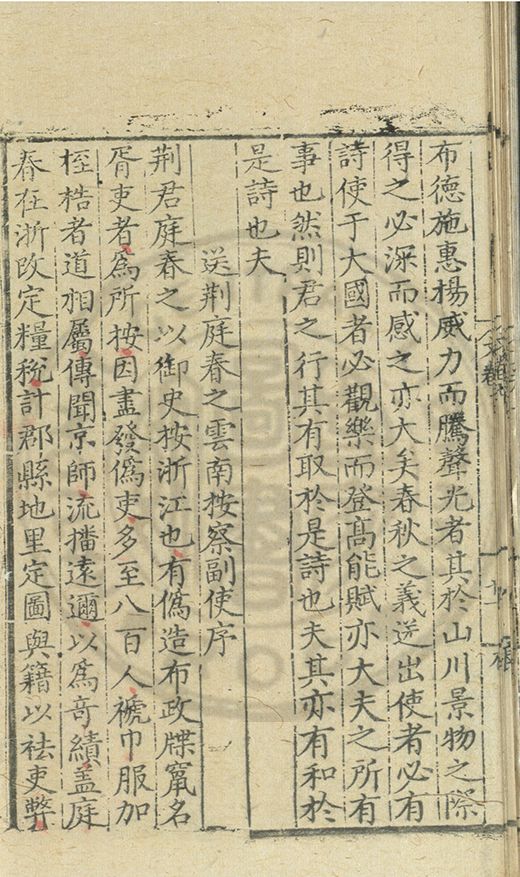 布德施惠楊威力而騰聲光者其於山川景物之際
得之必深而感之亦大矣春秋之義送出使者必有
詩使于大國者必觀樂而登髙能賦亦大夫之所有
事也然則君之行其有取於是詩也夫其亦有和於
是詩也夫
送荆庭春之雲南按察副使序
荆君庭春之以御史按浙江也有僞造布政牒竄名
胥吏者爲所按因盡發僞吏多至八百人褫巾服加
桎梏者道相屬傳聞京師流播遠邇以爲竒績盖庭
春在浙改定糧稅計郡縣地里定圖與籍以袪吏弊